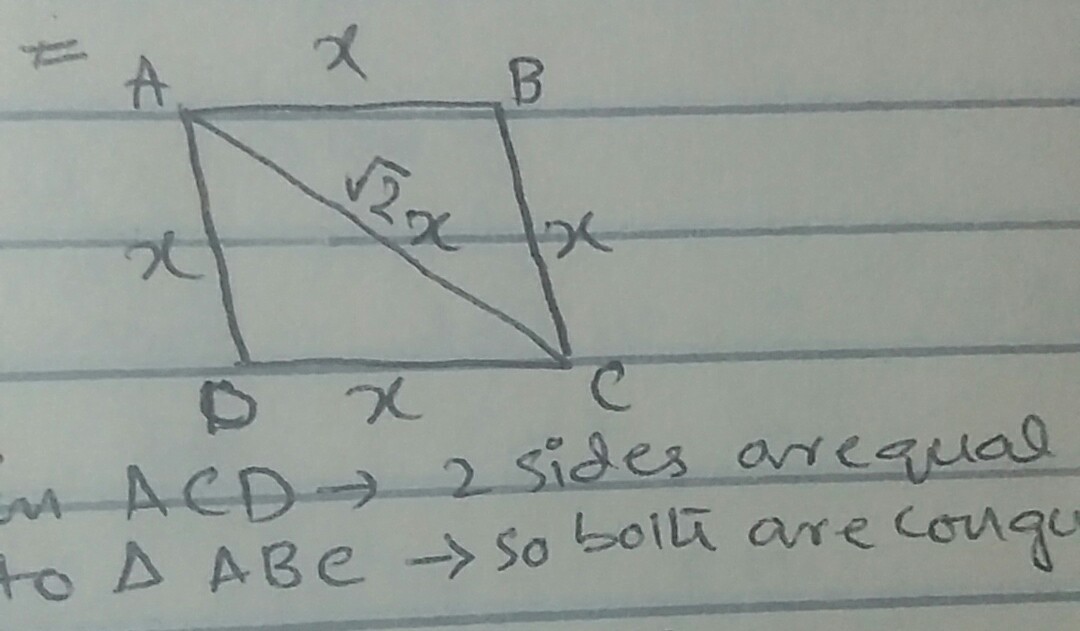 =
x
A
B
√2x
x
x
D
x
C
in ACD → 2 sides are equal
to Δ ABC → so both are congu